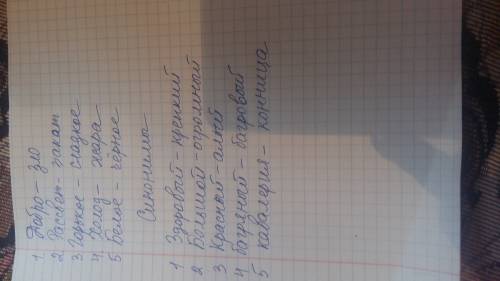 1. Добро - зло
2 Рассвет - закат
3 Горькое - сладкое
4. Холод - жара
5 Белое - чёрное
Синонимы
1 Здоровый - крепкий
2 Большой - огромный
3 Красный - алый
4 багряный - багровый
5 кавалерия - конница